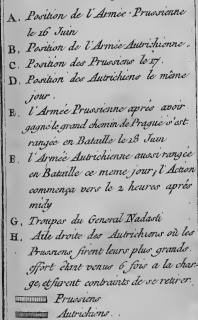 A. Position de l'Armée Prussienne
le 16 Juin
B. Position de l'Armée Autrichienne.
C. Position des Prussiens le 17.
D. Position des Autrichiens le même
jour.
E. l'Armée Prussienne aprés avoir
gagné le grand chemin de Prague s'est
rangée en Bataille le 18 Juin
F. l'Armée Autrichienne aussi rangée
en Bataille ce meme jour, l'Action
commença vers le 2 heures aprés
midy
G. Troupes du General Nadasti
H. Aile droite des Autrichiens où les
Prussiens firent leurs plus grands
effort étant venus 6 fois a la char-
ge, et furent contraints de se retirer.
Prussiens
Autrichiens.